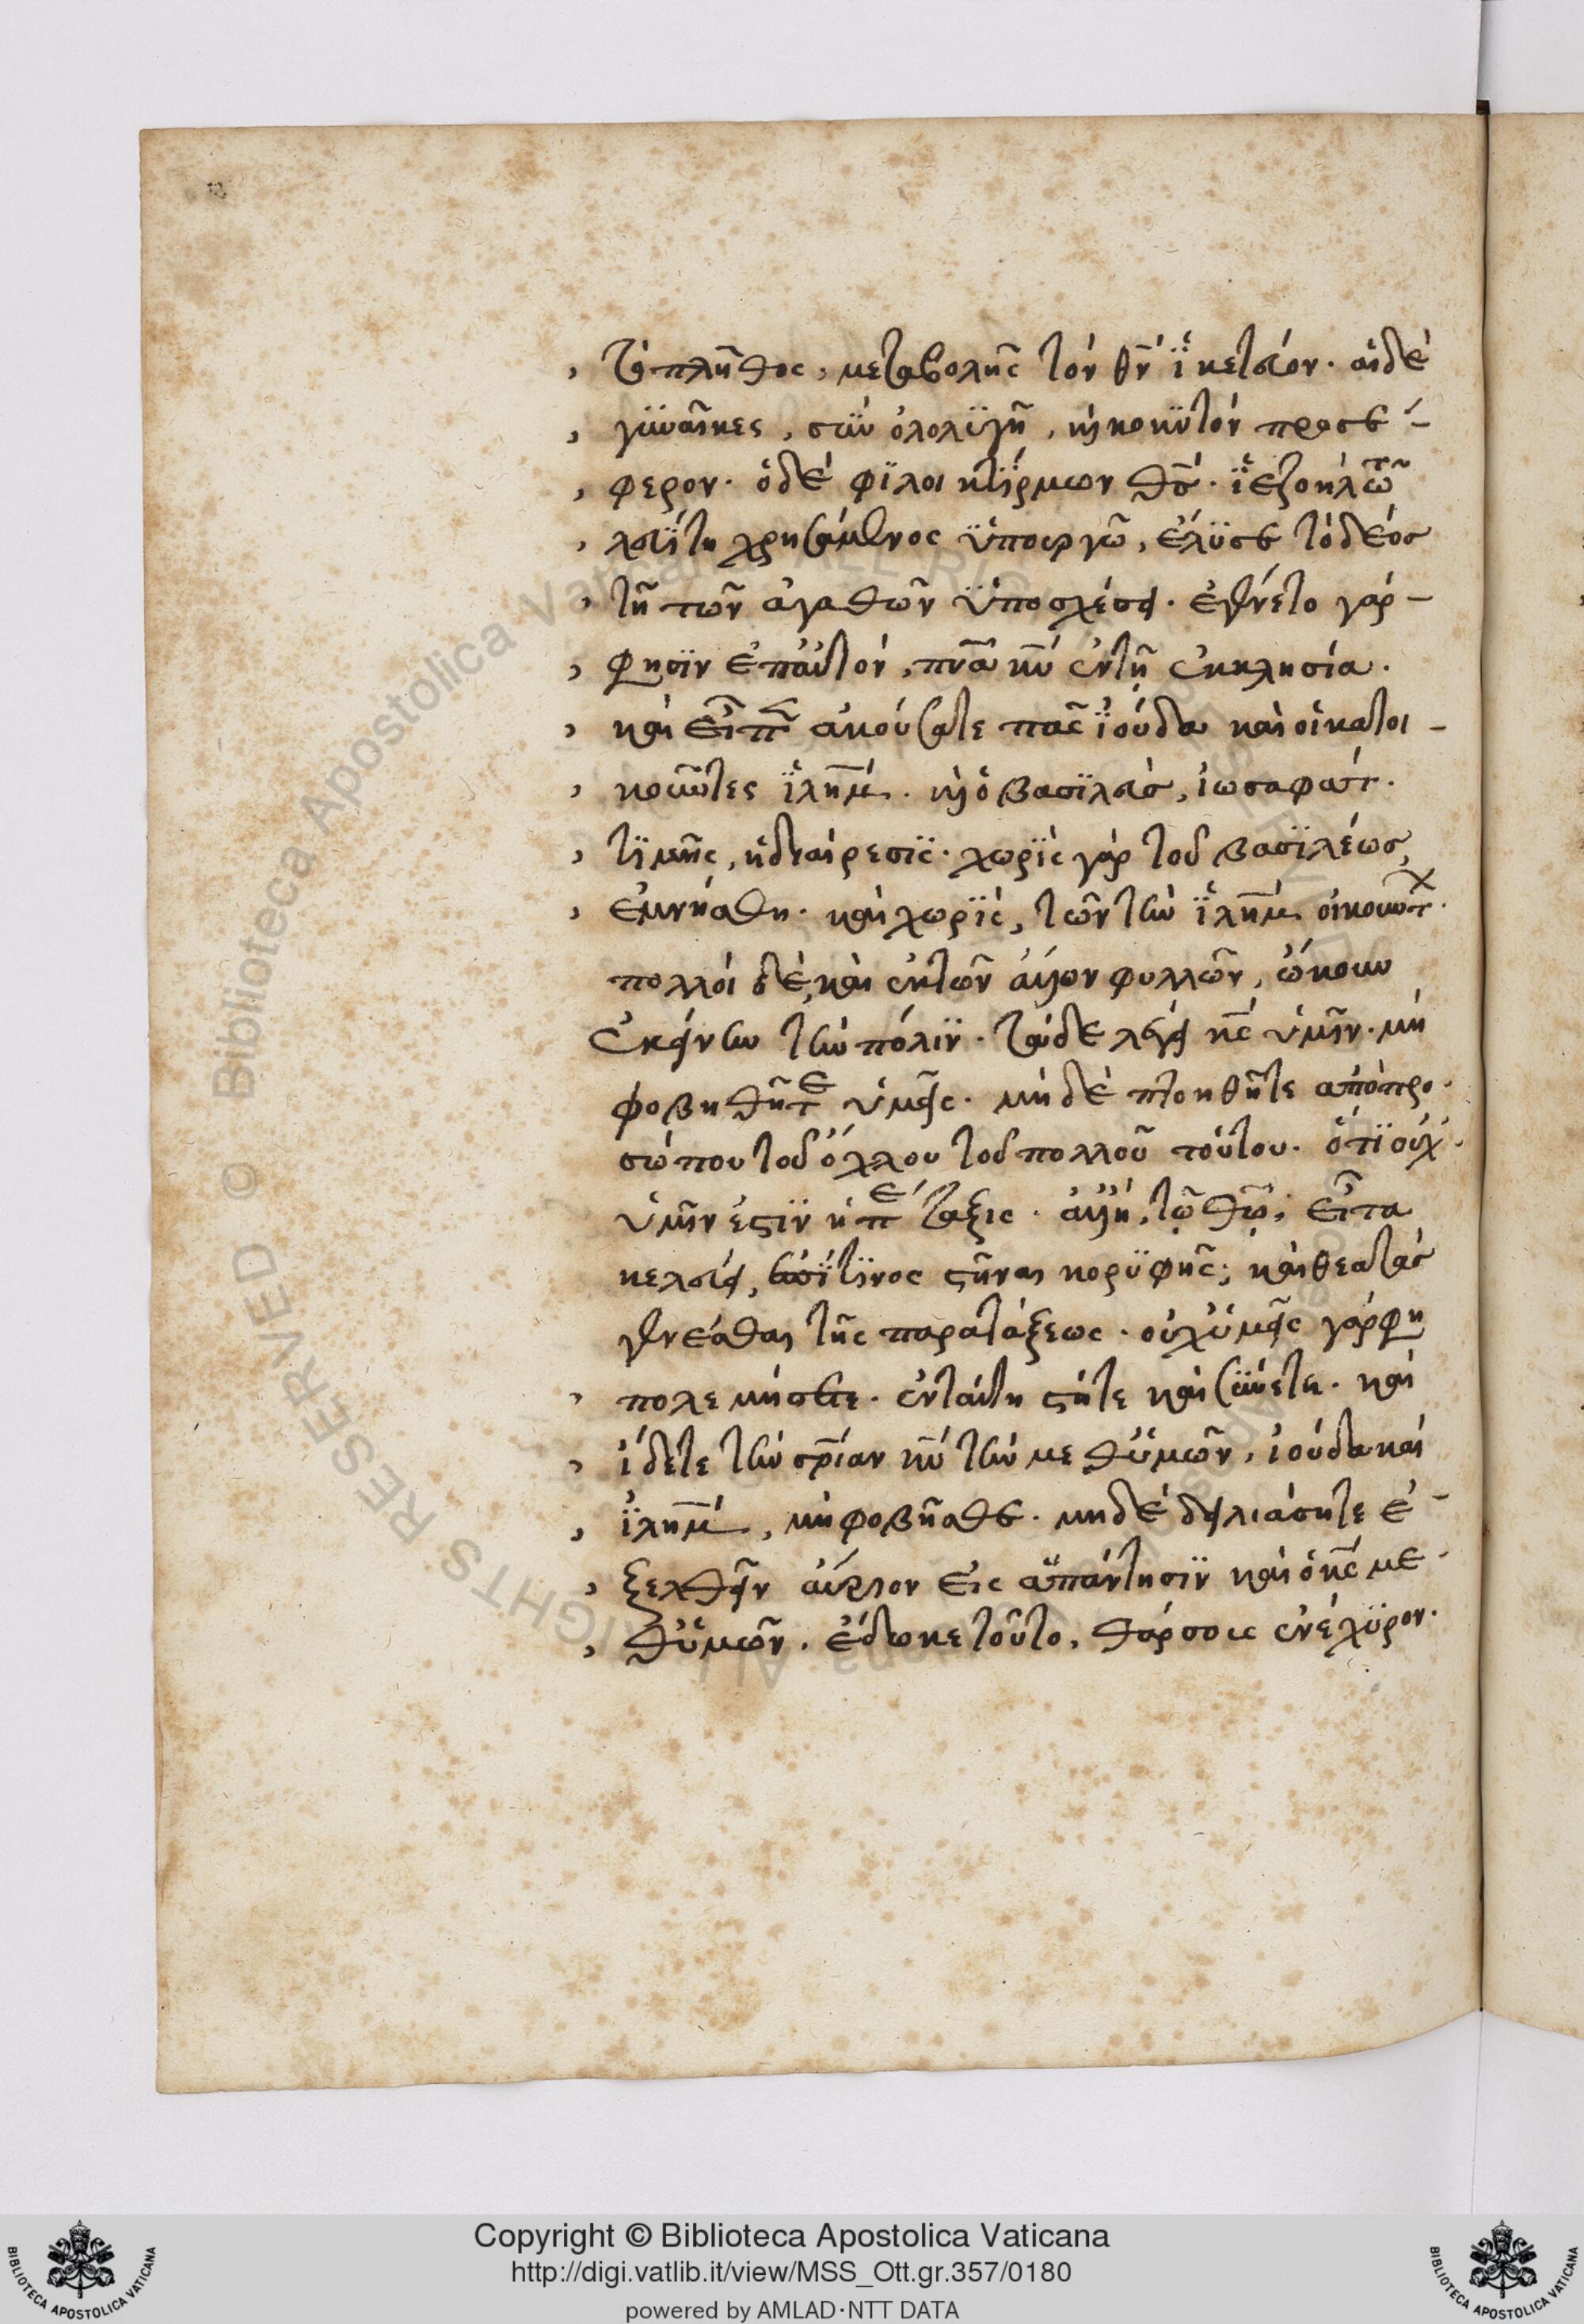 τὸ πλῆθος, μεταβολῆς τὸν θν ἱκετεύον. αἱ δὲ
γϋναῖκες, σὺν ὀλολϋγῆ, κωκϋτὸν προσέ-
φερον. ὁ δὲ φϊλοικτίρμων θς. ϊεζοιὴλ τῶ
λευΐτη χρησάμενος ϋπουργῶ, ἔλϋσε τὸ δέος
τῆ τῶν ἀγαθῶν ϋποσχέσει. ἐγένετο γάρ-
φησϊν ἐπ' αὐτὸν, πνα κυ ἐν τῆ ἐκκλησία.
καὶ εἶπεν ἀκούσατε πᾶς ϊούδα καὶ οἱ κατοι-
κοῦντες ϊλημ. κὶ ὁ βασϊλεὺς, ἰωσαφάτ.
τϊμῆς, ἡ διαίρεσϊς. χωρϊς γὰρ τοῦ βασϊλέως,
ἐμνήσθη. καὶ χωρϊς, τῶν τὴν ϊλημ οἰκούντ.
πολλοὶ δὲ, καὶ ἐκ τῶν ἄλλων φυλλῶν, ὤκουν
ἐκείνην τὴν πόλϊν. τάδε λέγει κς ὑμῖν. μὴ
φοβηθῆτε ὑμεῖς. μὴ δὲ πτοηθῆτε ἀπὸ προ.
σώπου τοῦ ὄχλου τοῦ πολλοῦ τούτου. ὅτϊ οὐχ.
ὑμῖν ἐστϊν ἡ παράταξις. ἀλλὴ, τῶ θω; εἶτα
κελεύει, ἐπΐ τϊνος στῆναι κορϋφῆς; καὶ θεατὰς
γενέσθαι τῆς παρατάξεως. οὐχ ὑμεῖς γάρ φη
πολεμήσετε. ἐν ταύτη στῆτε καὶ σύνετε. καὶ
ἴδετε τὴν σριαν κυ τὴν μεθ' ὑμῶν, ἰούδα καὶ
ϊλημ, μὴ φοβῆσθε. μηδὲ δειλιάσητε ἐ-
ξελθεῖν αὔριον εἰς ἀπάντησϊν καὶ ὁ κς με-
θ' ὑμῶν. ἔδωκε τοῦτο, θάρσους ἐνέχϋρον.
Copyright © Biblioteca Apostolica Vaticana
http://digi.vatlib.it/view/MSS_Ott.gr.357/0180
powered by AMLAD·NTT DATA